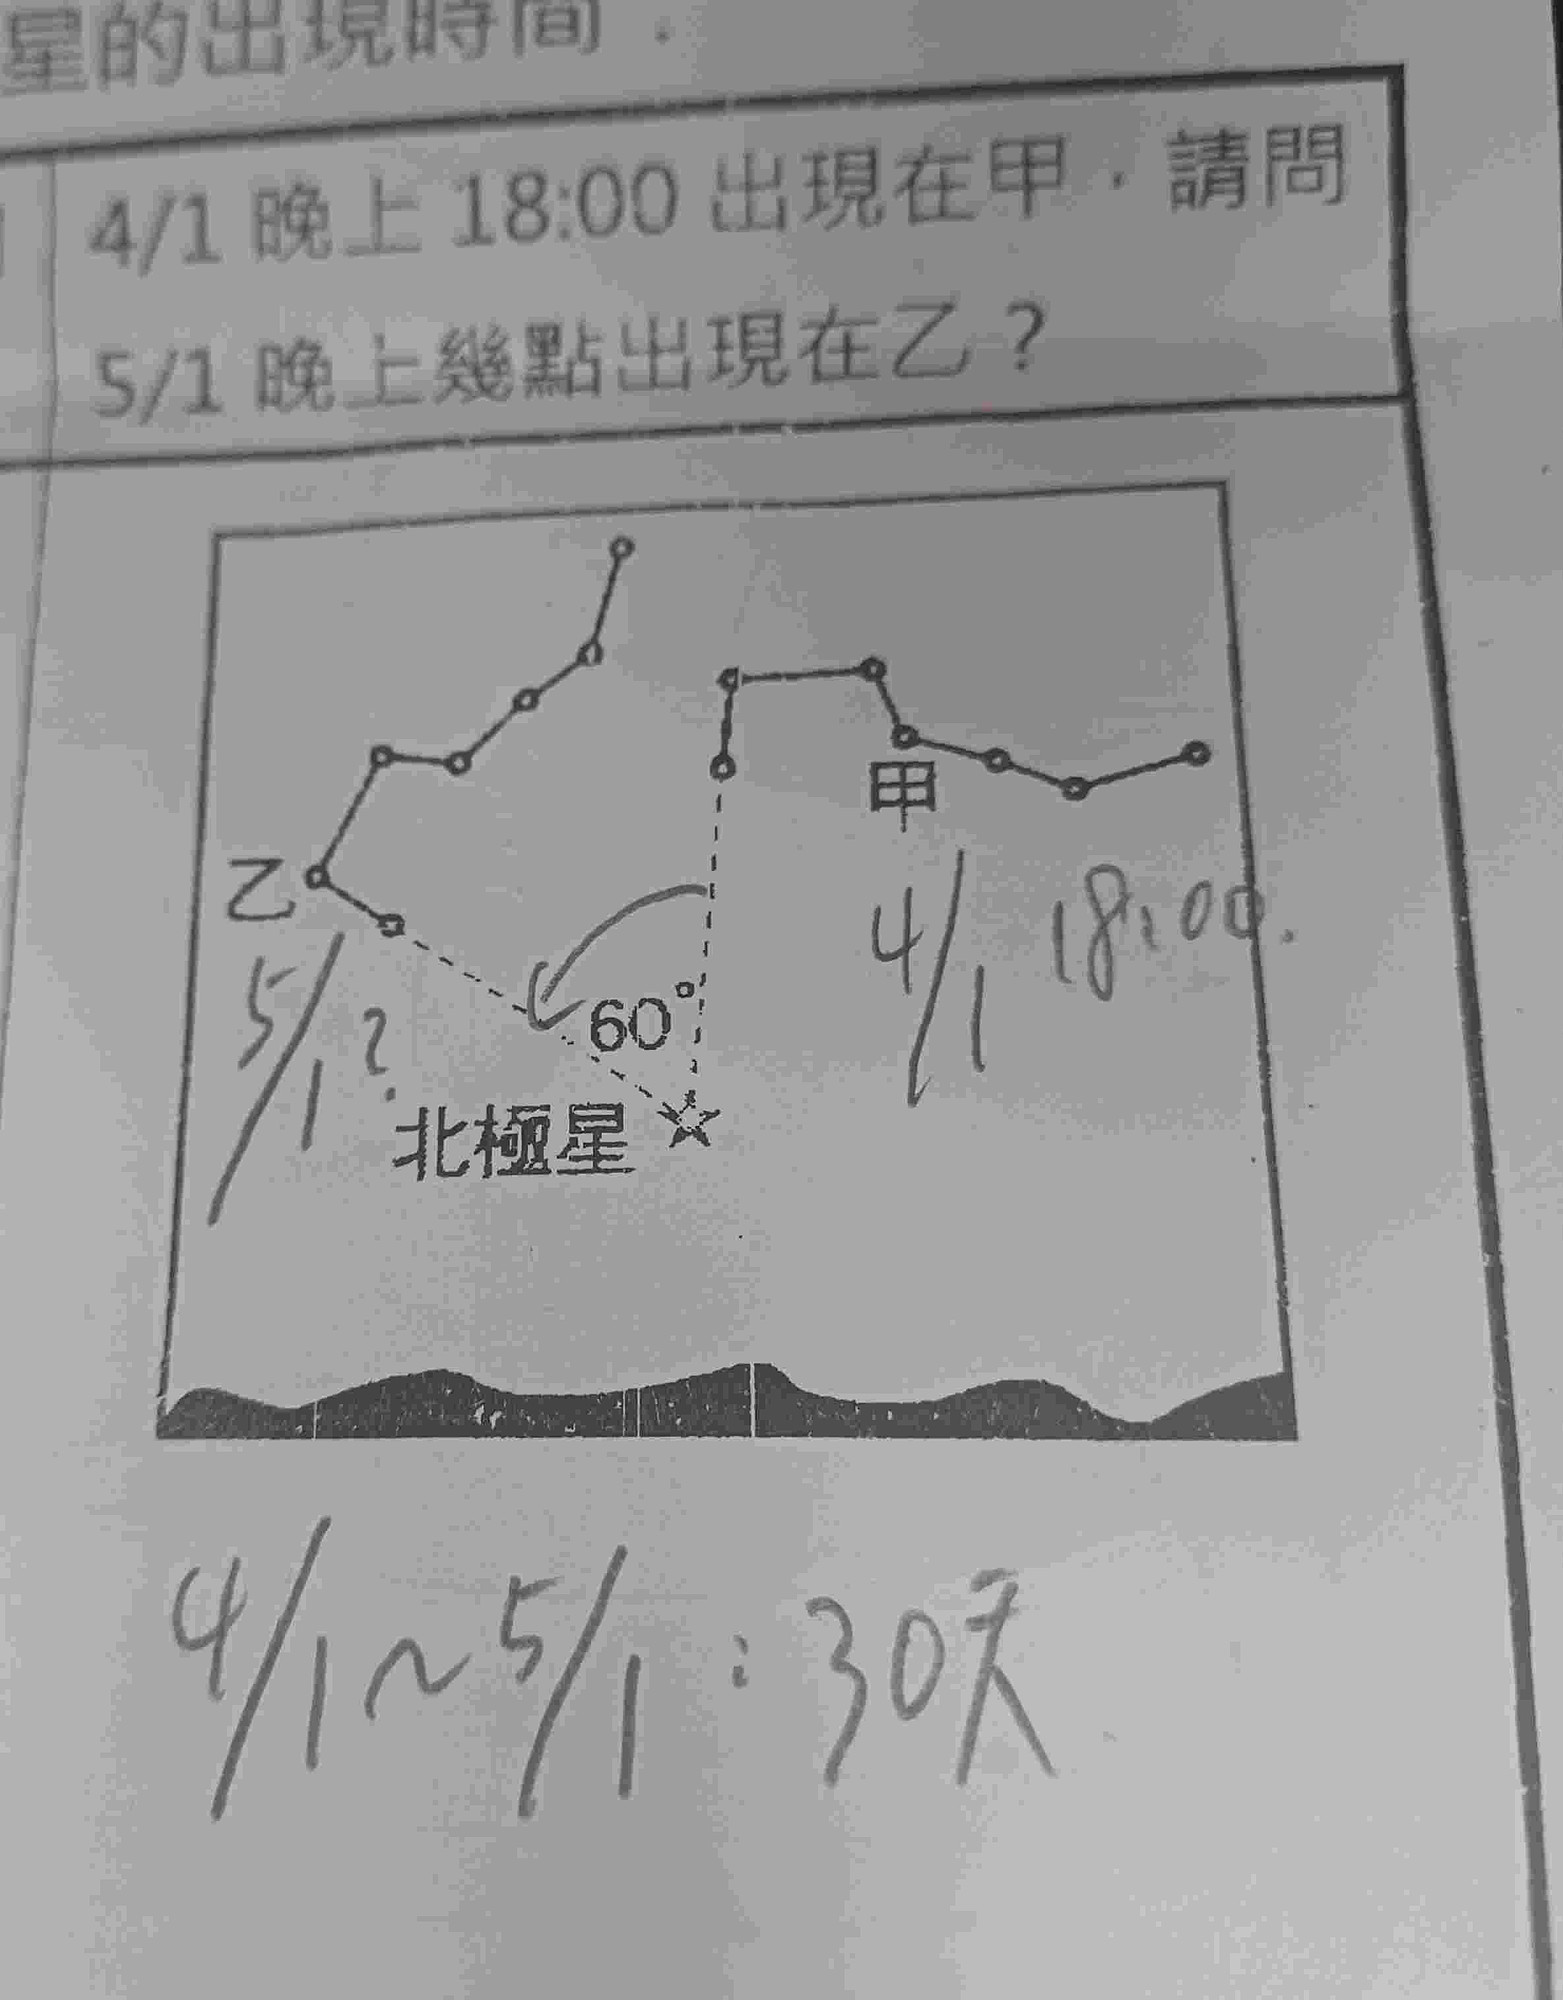 星的出現時間.
4/1 晚上 18:00 出現在甲，請問
5/1 晚上幾點出現在乙？
甲
乙
4/1 18:00.
5/1?
60°
北極星
4/1~5/1：30天